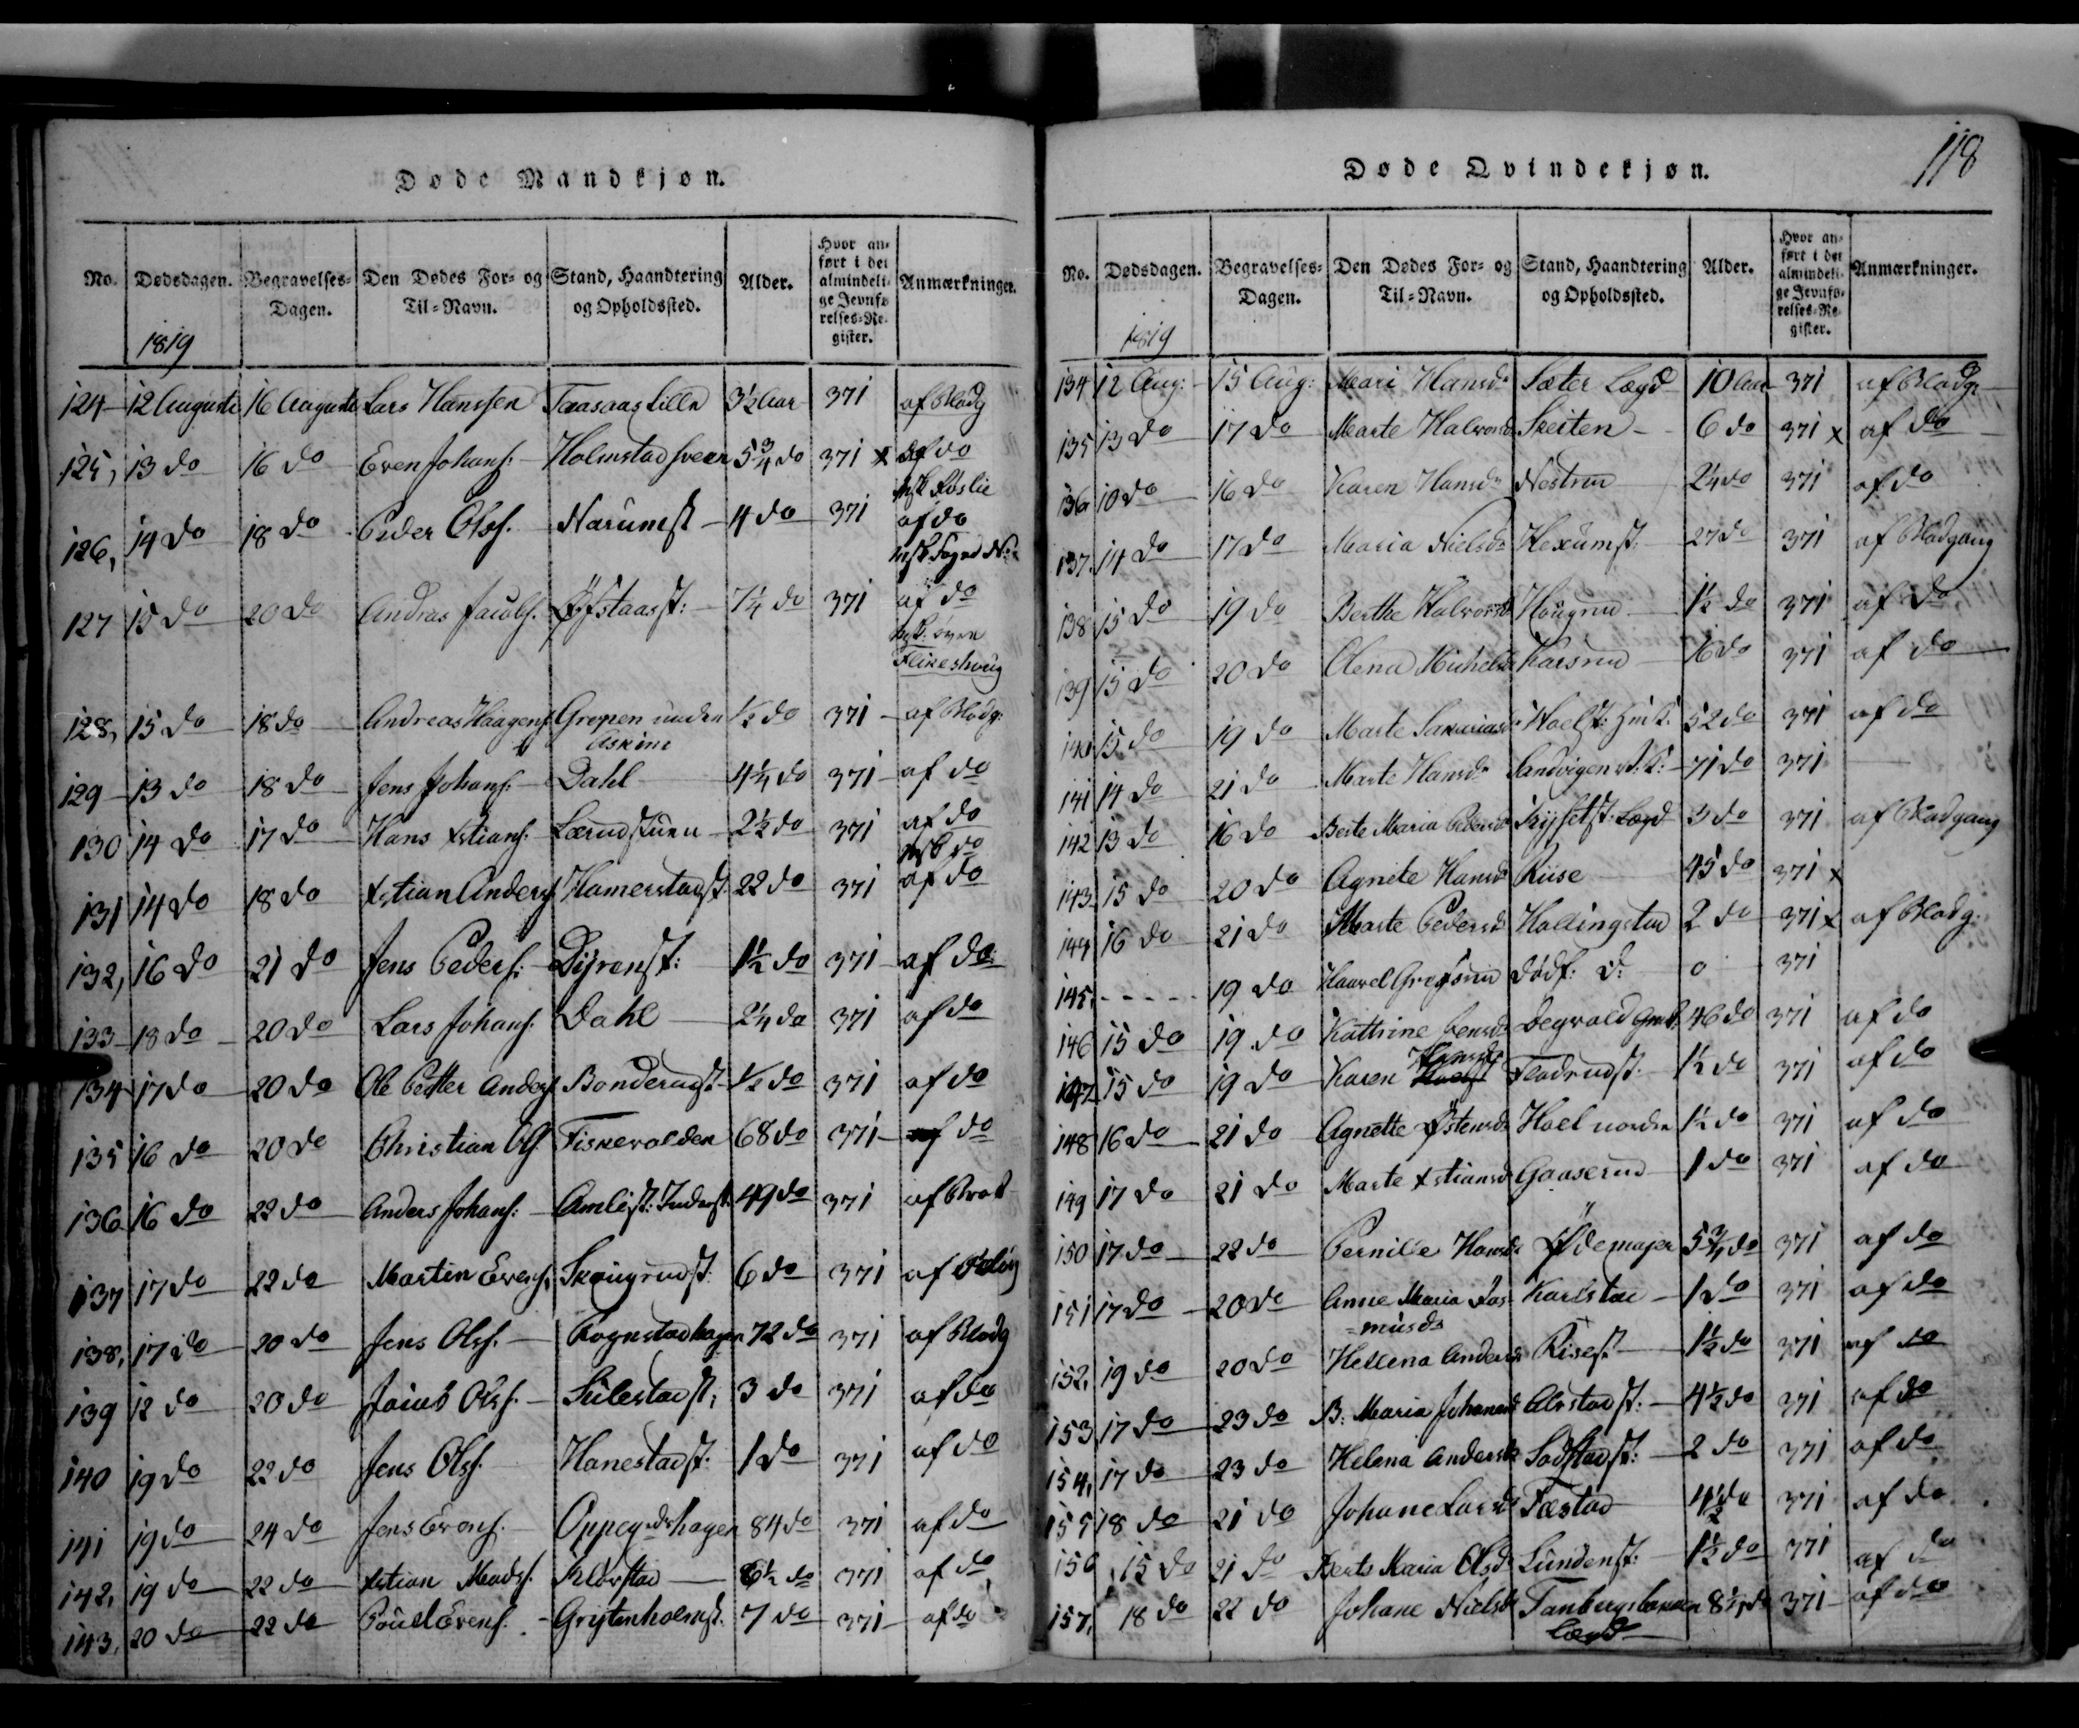 Døde Mandkjøn.
No. Dødsdagen. Begravelses-Dagen. Den Dødes For- og Til-Navn. Stand, Haandtering og Opholdssted. Alder. Hvor anført i det almindelige Jevnførelses-Register. Anmærkninger.
1819
124 12 Auguste 16 Auguste Lars Hanssen Taasaas Lilla 3½ Aar 371 af Blodg
125, 13 do 16 do Even Johans: Holmstad sveen 5¾ do 371 x af do
126, 14 do 18 do Peder Ols. Narumst 4 do 371 af do
127 15 do 20 do Andras Jacobs. Øfstaast: 7¼ do 371 af do
128, 15 do 18 do Andreas Haagens Grepen under ½ do 371 af Blodg:
Askim
129 13 do 18 do Jens Johans: Dahl 4¼ do 371 af do
130 14 do 17 do Hans Xstians: Lærudstuen 2½ do 371 af do
131 14 do 18 do Xstian Anders Hamerstadst: 22 do 371 af do
132, 16 do 21 do Jens Peders: Dyrenst: 1½ do 371 af do:
133 18 do 20 do Lars Johans: Dahl 2¼ do 371 af do
134 17 do 20 do Ole Petter Anders Bonderudst ½ do 371 af do
135 16 do 20 do Christian Ols Fiskevolden 68 do 371 af do
136 16 do 22 do Anders Johans: Amlist: Inderst: 49 do 371
137 17 do 22 do Martin Evens. Skougrudst: 6 do 371
138, 17 do 20 do Jens Ols. Rognstadhagen 72 do 371 af Blodg
139 12 do 20 do Jacob Ols. Sulestadst, 3 do 371 af do
140 19 do 22 do Jens Ols. Hanestadst: 1 do 371 af do
141 19 do 24 do Jens Evens. Oppegdshagen 84 do 371 af do
142, 19 do 22 do Xstian Mads. Kløvstad 6½ do 371 af do
143, 20 do 22 do Poul Evens. Grytenholmst: 7 do 371 af do
118
Døde Qvindekjøn.
No. Dødsdagen. Begravelses-Dagen. Den Dødes For- og Til-Navn. Stand, Haandtering og Opholdssted. Alder. Hvor anført i det almindelige Jevnførelses-Register. Anmærkninger.
1819
134 12 Aug: 15 Aug: Mari Hansdr Sæter Lægd 10 Aar 371 af Blodg:
135 13 do 17 do Marte Halvorsd Skeiten 6 do 371 x af do
136 10 do 16 do Karen Hansdr Nestrud 2¼ do 371 af do
137 14 do 17 do Maria Nielsdr Hexumst: 27 do 371 af Blodgang
138 15 do 19 do Berthe Halvorsd Hougrud 1½ do 371 af do
139 15 do 20 do Olena Michelsd Karsrud 371 af do
140 15 do 19 do Marte Hoelst: 52 do 371 af do
141 14 do 21 do Marte Hansdr Sandvigen 71 do 371
142 13 do 16 do Berte Maria Pedersd Lægd 3 do 371 af Blodgang
143 15 do 20 do Agnete Hansd Riise 45 do 371 x
144 16 do 21 do Marte Pedersd Hallingstad 2 do 371 x af Blodg:
145 - - - - - 19 do Haavel Gregsrud dødf: D: 0 371
146 15 do 19 do Kathrine Jensdr 46 do 371 af do
147 15 do 19 do Karen Hansdr Fladrudst: 1½ do 371 af do
148 16 do 21 do Agnette Østensd Hoel nordre 1½ do 371 af do
149 17 do 21 do Marte Xstiansd Gaaserud 1 do 371 af do
150 17 do 22 do Pernille Hansdr Ødemajer 5¾ do 371 af do
151 17 do 20 do Anne Maria Ras- Karlstad 1 do 371 af do
=musdr
152, 19 do 20 do Hellena Andersd Risest: 1½ do 371 af do
153, 17 do 23 do B: Maria Johansd Alvstadst: 4½ do 371 af do
154, 17 do 23 do Helena Andersd Sofstadst: 2 do 371 af do
155 18 do 21 do Johane Larsdr Tæstad 4½ do 371 af do
156 15 do 21 do Berte Maria Olsdr Lundenst: 1½ do 371 af do
157, 18 do 22 do Johane Nielsdr 371 af do
Lægd